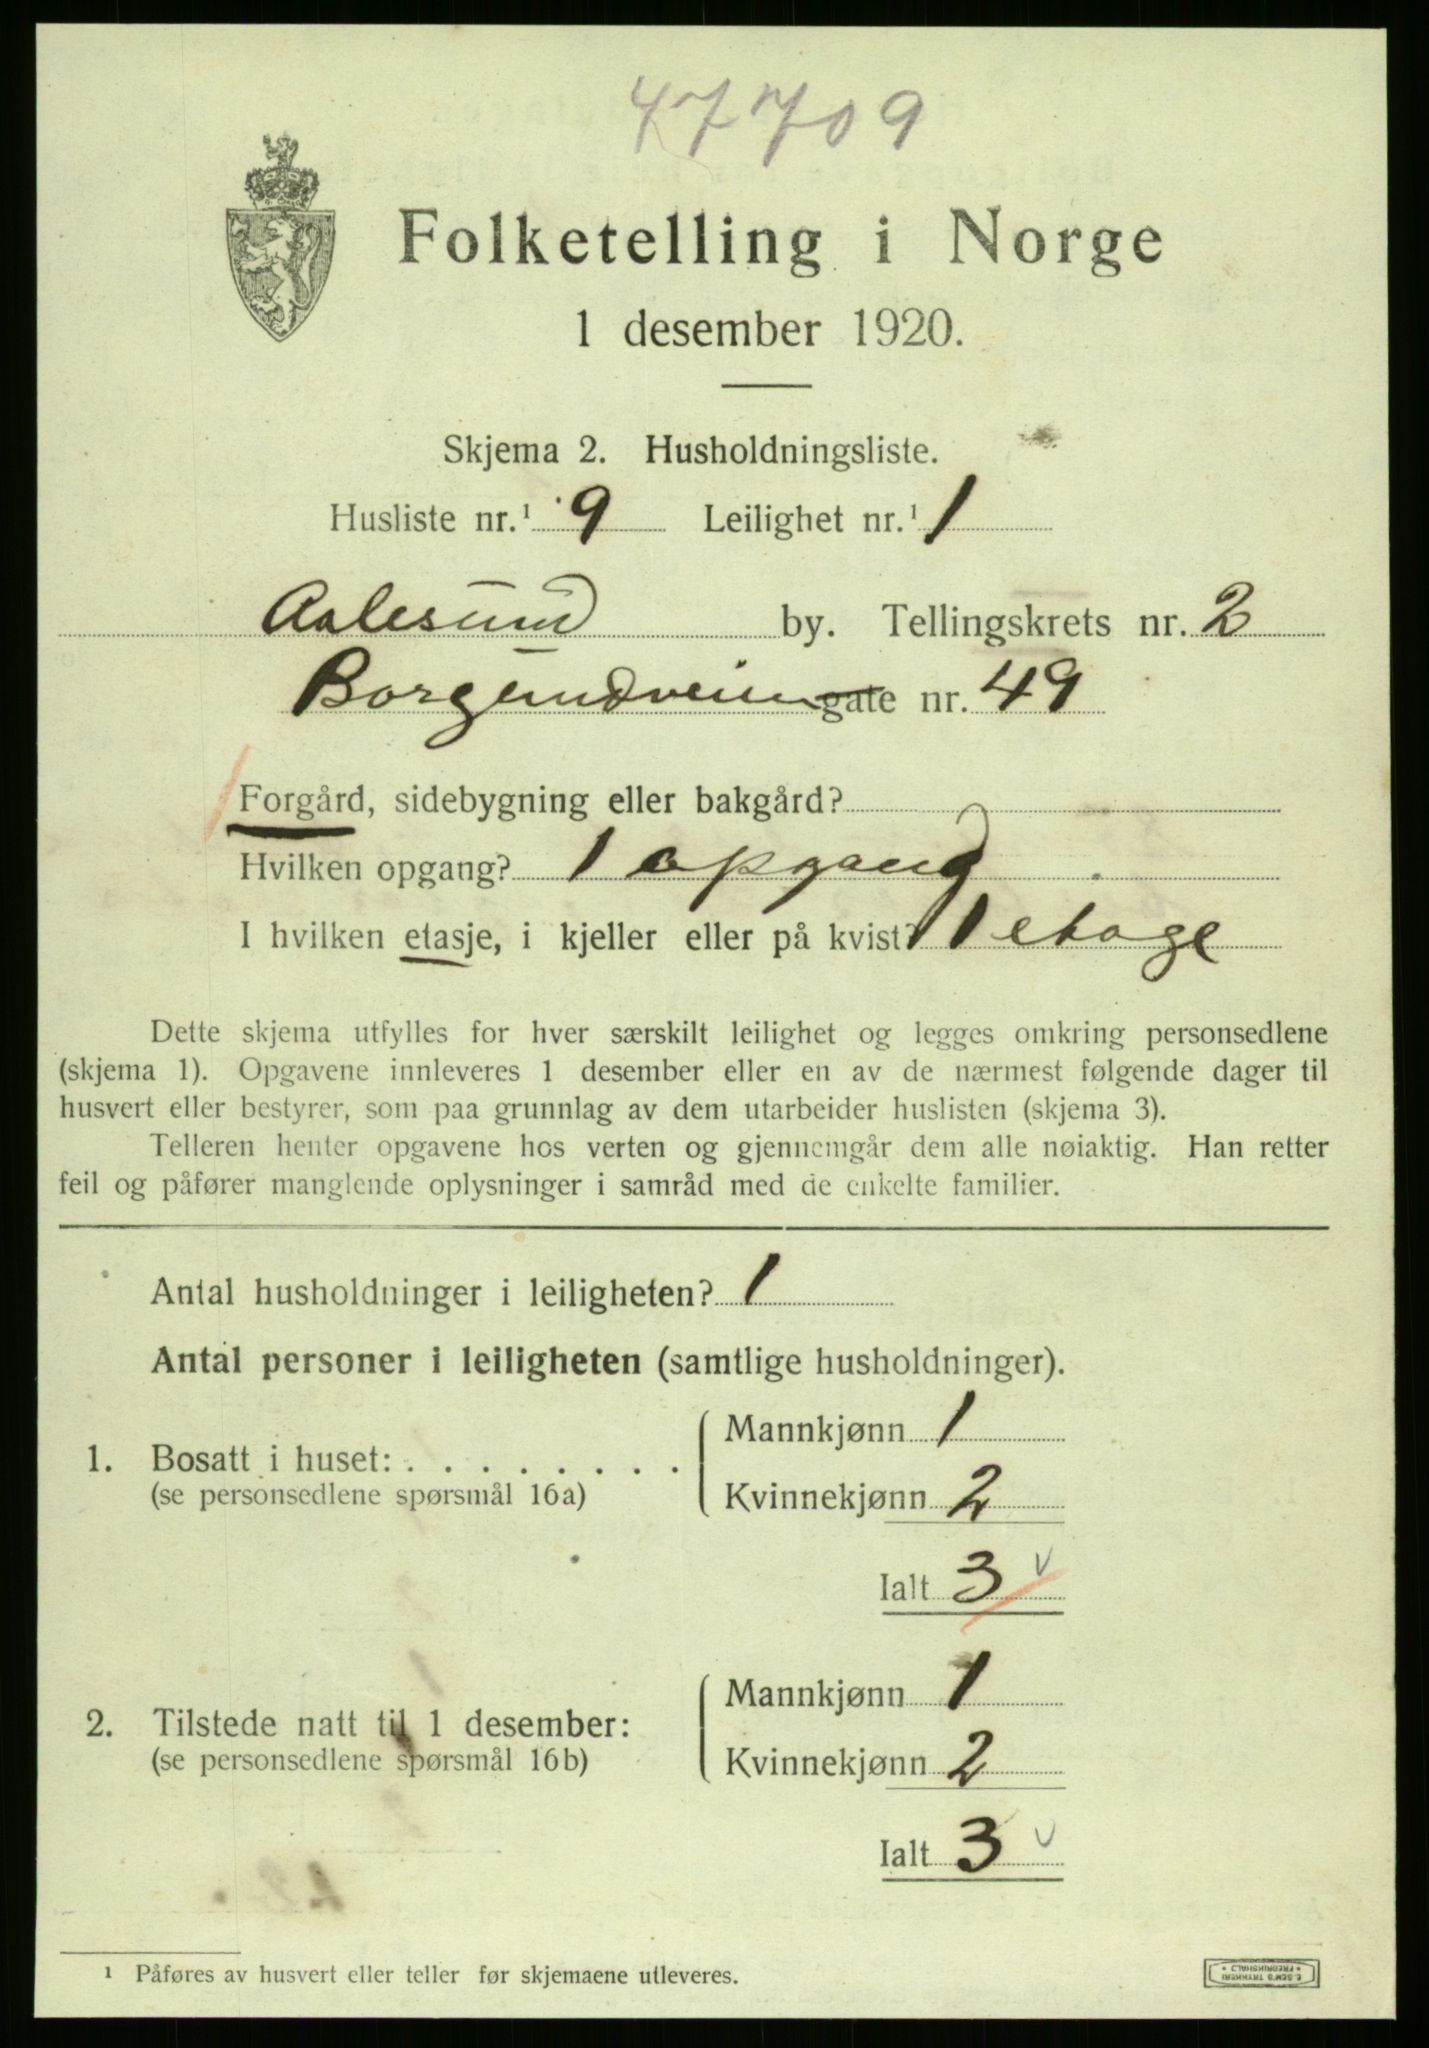 47709
Folketelling i Norge
1 desember 1920.
Skjema 2. Husholdningsliste.
Husliste nr.¹ 9 Leilighet nr.¹ 1
Aalesund by. Tellingskrets nr. 2
Borgundveien gate nr. 49
Forgård, sidebygning eller bakgård?
Hvilken opgang? 1 opgang
I hvilken etasje, i kjeller eller på kvist? 1 etage
Dette skjema utfylles for hver særskilt leilighet og legges omkring personsedlene
(skjema 1). Opgavene innleveres 1 desember eller en av de nærmest følgende dager til
husvert eller bestyrer, som paa grunnlag av dem utarbeider huslisten (skjema 3).
Telleren henter opgavene hos verten og gjennemgår dem alle nøiaktig. Han retter
feil og påfører manglende oplysninger i samråd med de enkelte familier.
Antal husholdninger i leiligheten? 1
Antal personer i leiligheten (samtlige husholdninger).
Mannkjønn 1
1. Bosatt i huset: . . . . . . . .
(se personsedlene spørsmål 16a)
Kvinnekjønn 2
Ialt 3 v
Mannkjønn 1
2. Tilstede natt til 1 desember:
(se personsedlene spørsmål 16b)
Kvinnekjønn 2
Ialt 3 v
¹ Påføres av husvert eller teller før skjemaene utleveres.
E. SEM'S TRYKKERI
FREDRIKSHALD